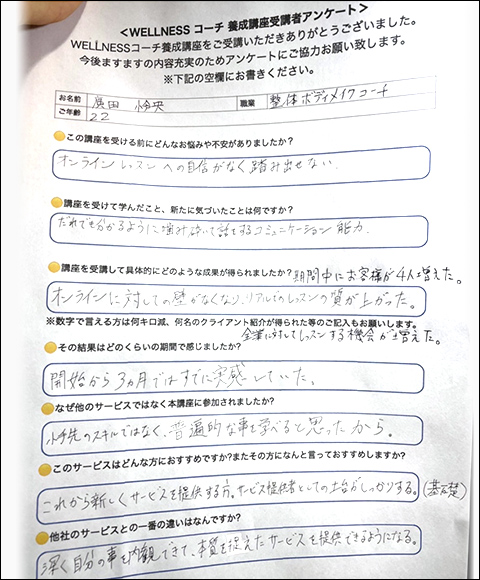 ＜WELLNESS コーチ 養成講座受講者アンケート＞
WELLNESSコーチ養成講座をご受講いただきありがとうございました。
今後ますますの内容充実のためアンケートにご協力お願い致します。
※下記の空欄にお書きください。
お名前 廣田 怜央 職業 整体ボディメイクコーチ
ご年齢 22
この講座を受ける前にどんなお悩みや不安がありましたか?
オンラインレッスンへの自信がなく踏み出せない。
講座を受けて学んだこと、新たに気づいたことは何ですか?
だれでも分かるように噛み砕いて話をするコミュニケーション能力。
講座を受講して具体的にどのような成果が得られましたか? 期間中にお客様が4人増えた。
オンラインに対しての壁がなくなり、リアルでのレッスンの質が上がった。
※数字で言える方は何キロ減、何名のクライアント紹介が得られた等のご記入もお願いします。
企業に対してレッスンする機会が増えた。
その結果はどのくらいの期間で感じましたか?
開始から3ヵ月ではすでに実感していた。
なぜ他のサービスではなく本講座に参加されましたか?
小手先のスキルではなく、普遍的な事を学べると思ったから。
このサービスはどんな方におすすめですか?またその方になんと言っておすすめしますか?
これから新しくサービスを提供する方。サービス提供者としての土台がしっかりする。(基礎)
他社のサービスとの一番の違いはなんですか?
深く自分の事を内観できて、本質を捉えたサービスを提供できるようになる。